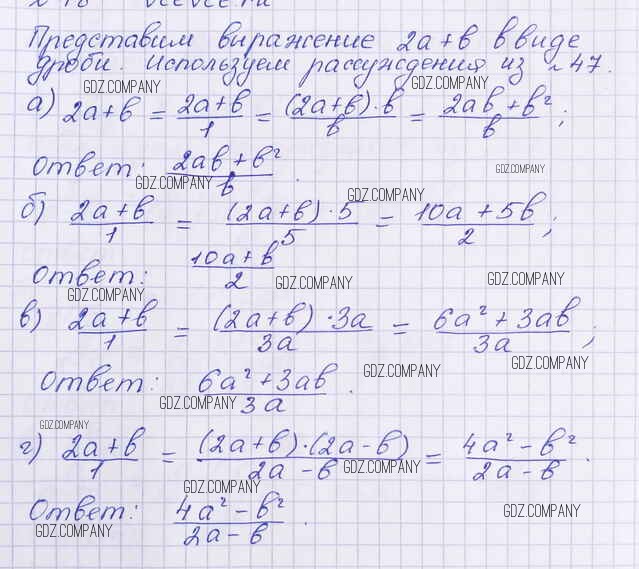 Представим выражение 2a+b в виде
дроби. Используем рассуждения из №47.
GDZ.COMPANY GDZ.COMPANY
а) 2a+b = \frac{2a+b}{1} = \frac{(2a+b)·b}{b} = \frac{2ab+b²}{b};
Ответ: \frac{2ab+b²}{b}.
GDZ.COMPANY GDZ.COMPANY
GDZ.COMPANY
б) \frac{2a+b}{1} = \frac{(2a+b)·5}{5} = \frac{10a+5b}{2};
Ответ: \frac{10a+b}{2}
GDZ.COMPANY GDZ.COMPANY GDZ.COMPANY
в) \frac{2a+b}{1} = \frac{(2a+b)·3a}{3a} = \frac{6a²+3ab}{3a};
GDZ.COMPANY GDZ.COMPANY
Ответ: \frac{6a²+3ab}{3a}.
GDZ.COMPANY
GDZ.COMPANY
г) \frac{2a+b}{1} = \frac{(2a+b)·(2a-b)}{2a-b} = \frac{4a²-b²}{2a-b}.
GDZ.COMPANY
GDZ.COMPANY
Ответ: \frac{4a²-b²}{2a-b}.
GDZ.COMPANY GDZ.COMPANY